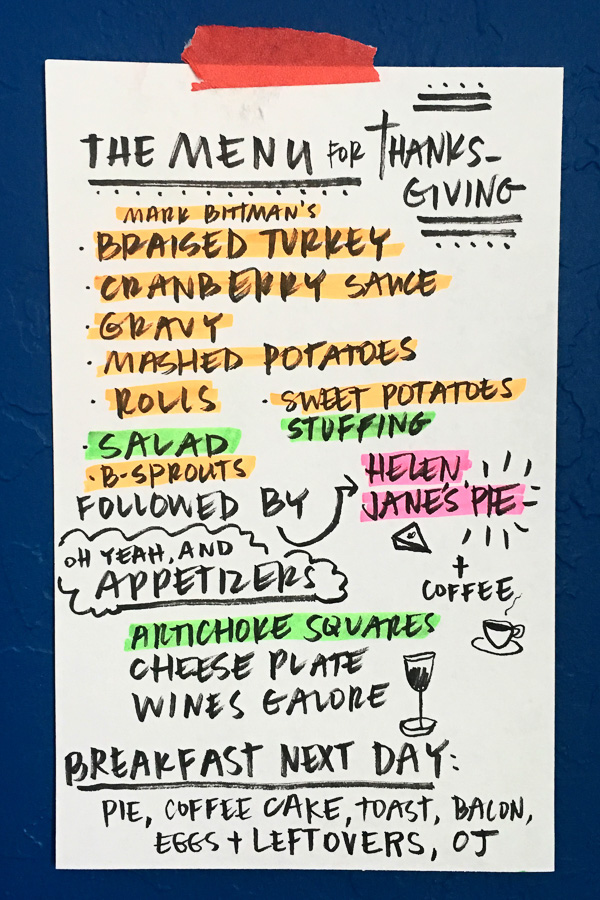 THE MENU FOR THANKS-
GIVING
MARK BITTMAN'S
· BRAISED TURKEY
· CRANBERRY SAUCE
· GRAVY
· MASHED POTATOES
· ROLLS
· SWEET POTATOES
STUFFING
· SALAD
· B-SPROUTS
FOLLOWED BY
HELEN
JANE'S PIE
+
COFFEE
OH YEAH, AND
APPETIZERS
ARTICHOKE SQUARES
CHEESE PLATE
WINES GALORE
BREAKFAST NEXT DAY:
PIE, COFFEE CAKE, TOAST, BACON,
EGGS + LEFTOVERS, OJ